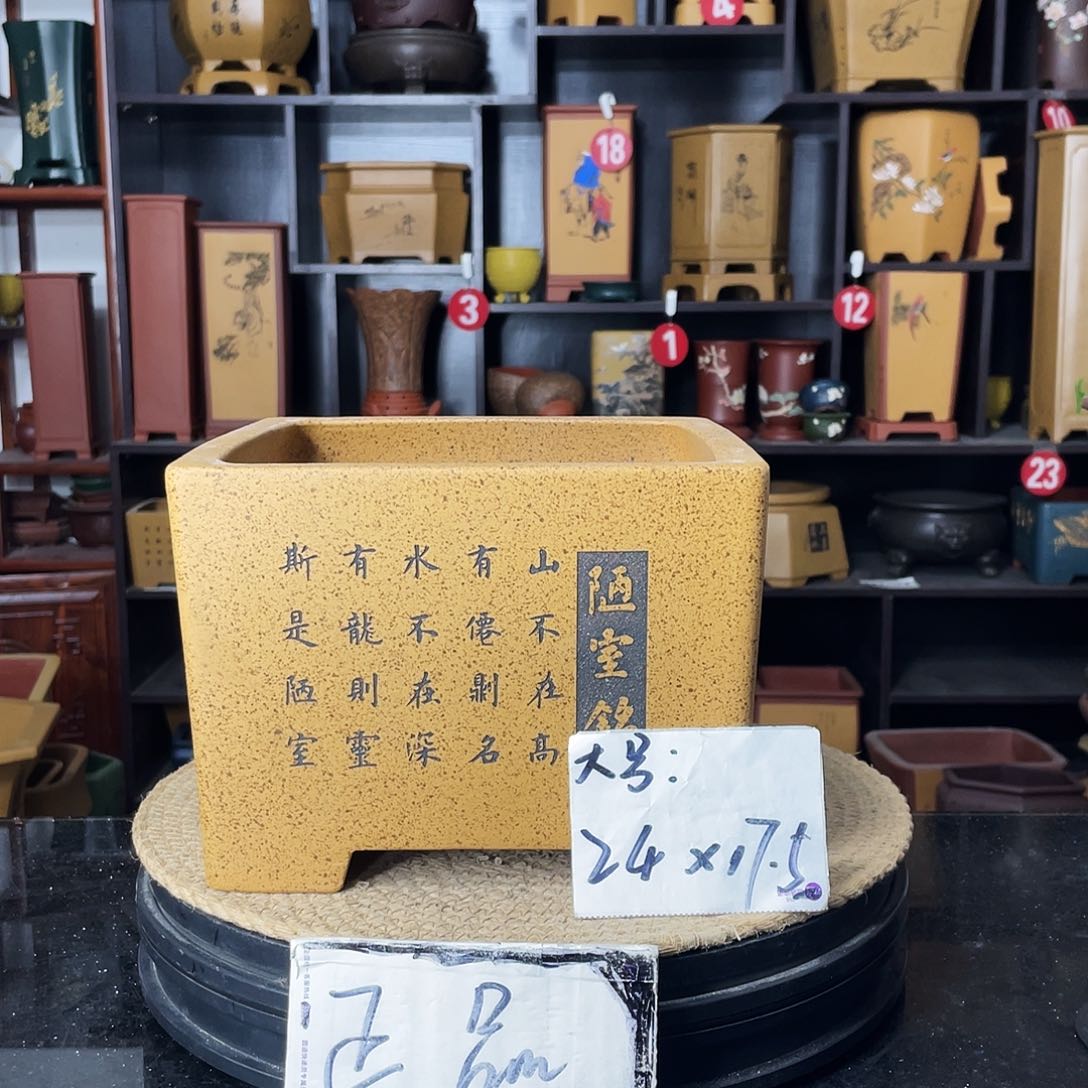 4
18
10
3
1
12
23
陋室銘
山不在高
有僊則名
水不在深
有龍則靈
斯是陋室
大号:
24×17.5
正品